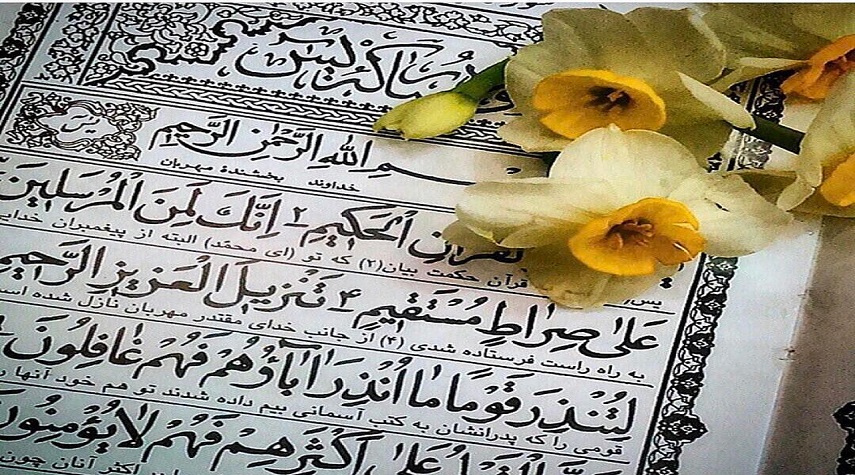 مبارکه یس
یس
بِسْمِ اللهِ الرَّحْمٰنِ الرَّحیمِ
خداوند بخشندهٔ مهربان
لْقُرْانِ الْحَکیمِ ۲ اِنَّكَ لَمِنَ الْمُرْسَلینَ
یس/ قرآن حکمت بیان(۲) که تو (ای محمّد) البته از پیغمبران خدایی
عَلیٰ صِراطٍ مُسْتَقیمٍ ۴ تَنْزیلَ الْعَزیزِ الرَّحیمِ
به راه راست فرستاده شدی (۴) از جانب خدای مقتدر مهربان نازل شده است
لِتُنْذِرَ قَوْماً ما اُنْذِرَ اٰباؤُهُمْ فَهُمْ غافِلُونَ
قومی را که پدرانشان به کتب آسمانی بیم داده شدند تو هم خود آنها را
الْقَوْلُ عَلیٰ اَکْثَرِهِمْ فَهُمْ لا یُؤْمِنُونَ
اکثر آنان چون